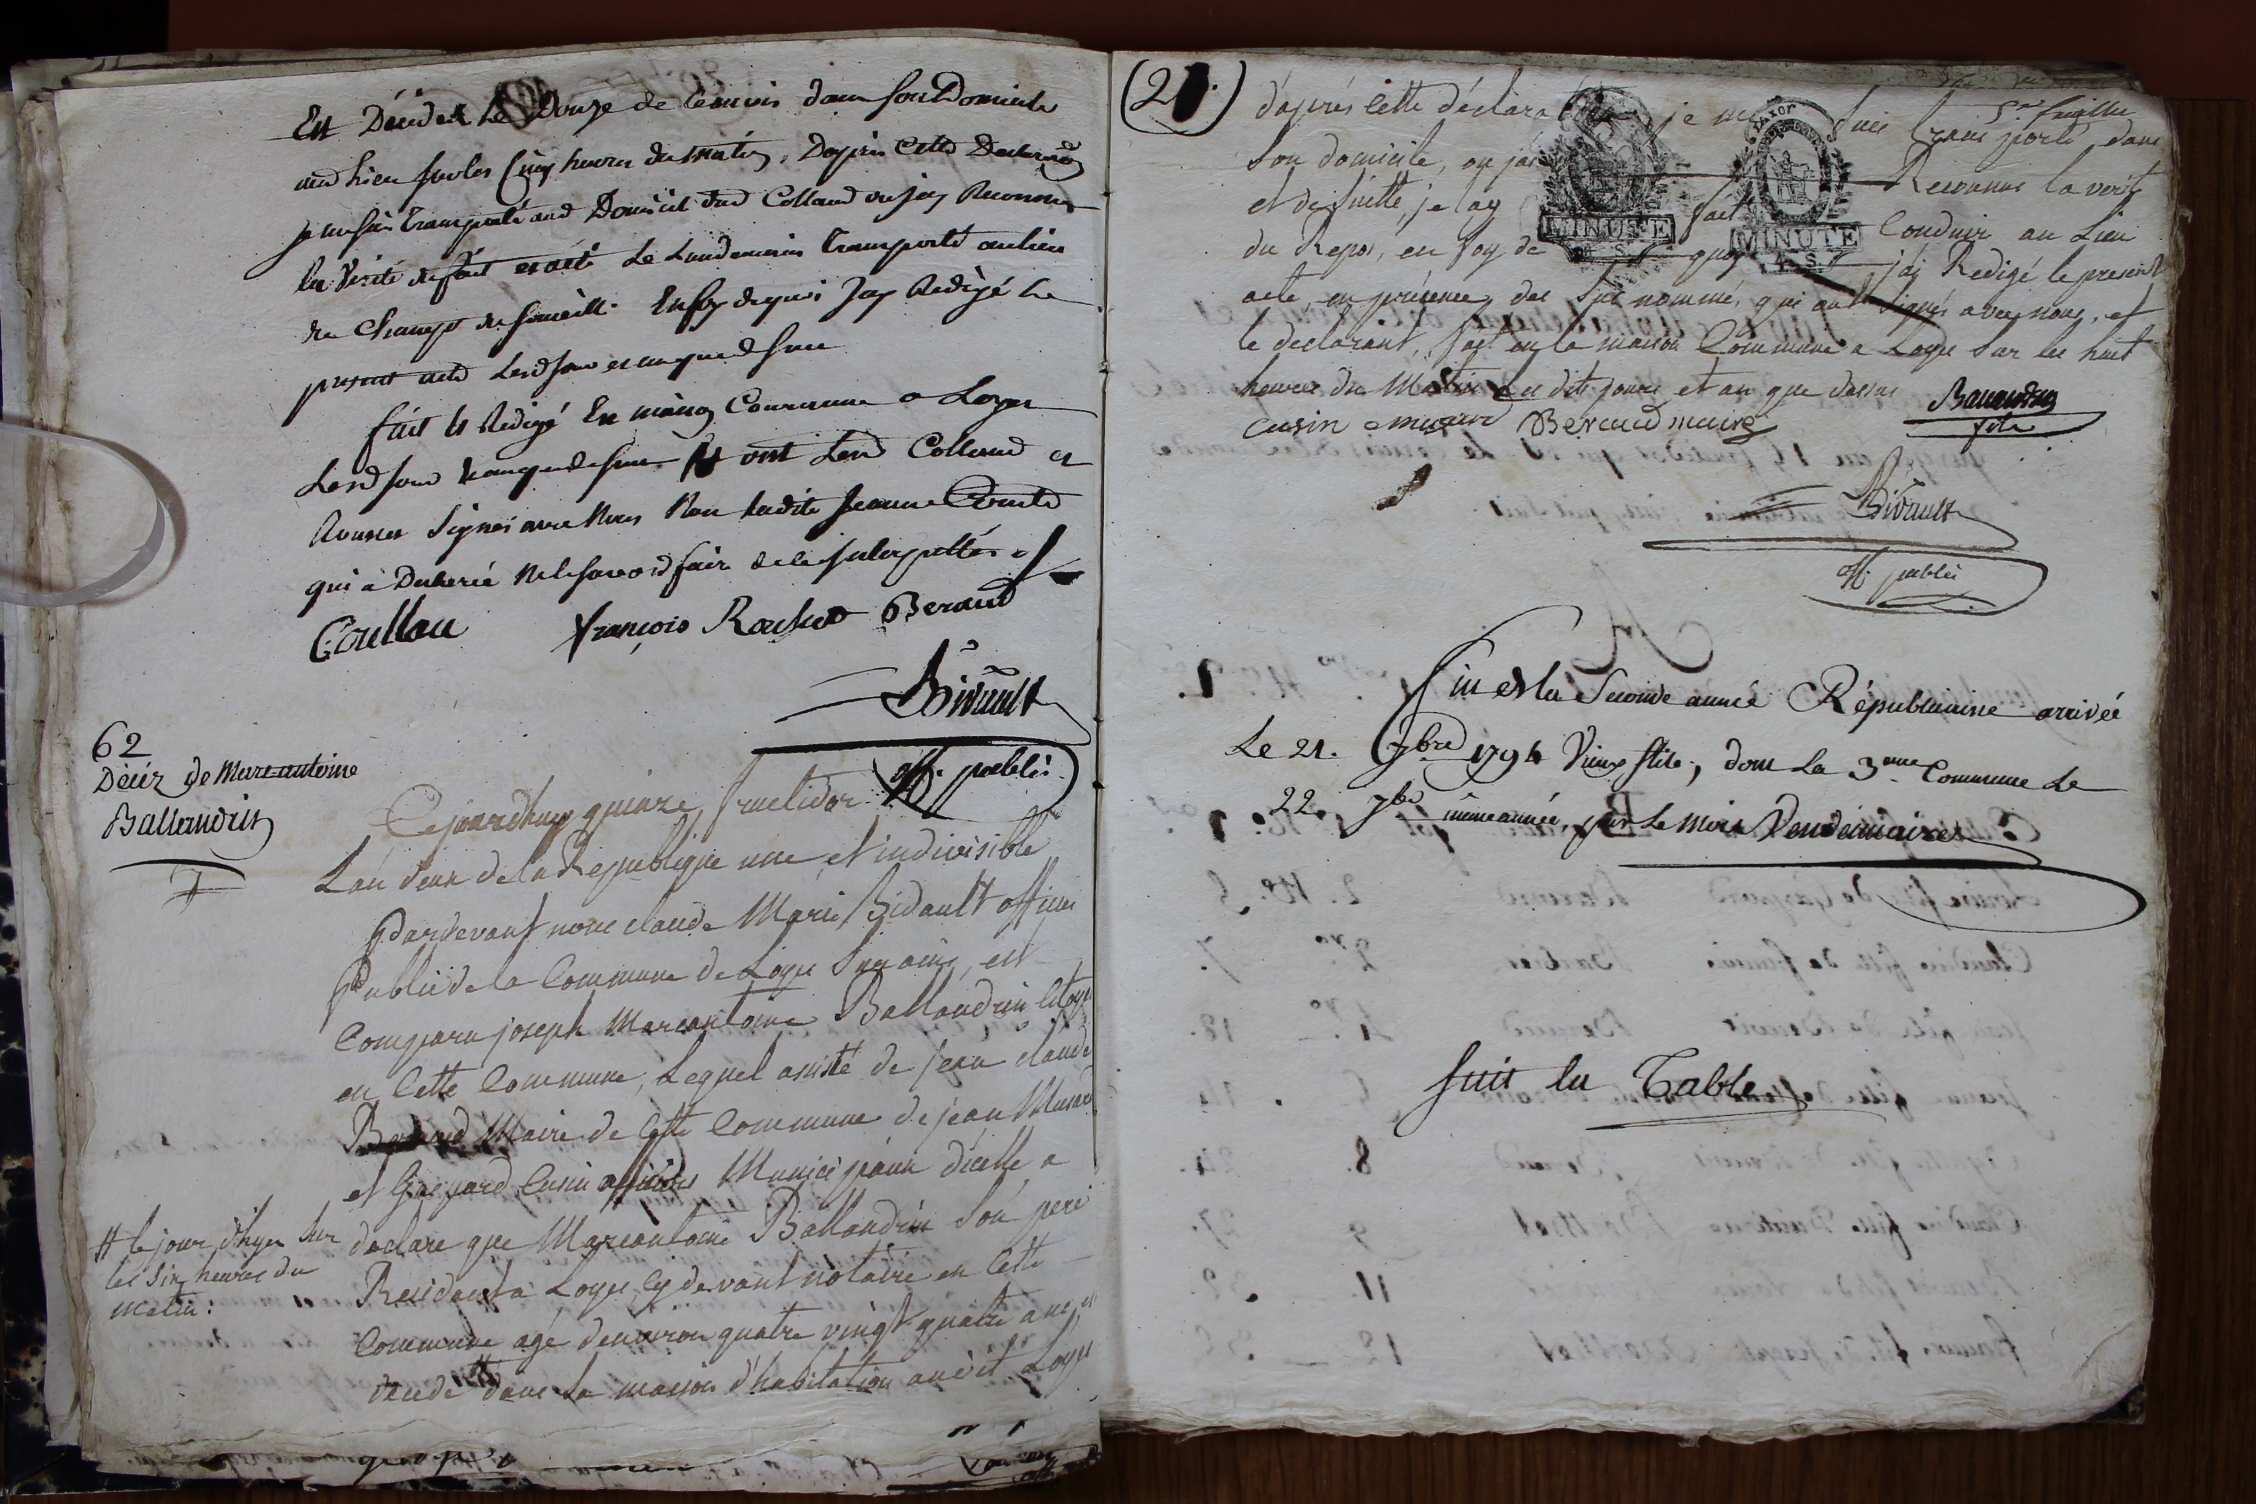 Est Décédé le Douze de ce mois dans son Domicile
aud lieu sur les Cinq heures du matin, Dapres Cette Declaraõn
je me suis transporté aud Domicile dud Colland ou jay Reconnu
la Verité du fait et a été le Lendemain transporté au lieu
du Champ du Sommeill. En foy de quoi Jay Redigé le
present acte lesd jour et an que dessus
fait et Redigé En maison Commune a Loyes
lesd jour et an que dessus et ont Led Colland et
signés avec Nous Non ladite Jeanne
qui a Declaré ne le savoir fair de ce Interpellés
Coullau François Rochet Beraud
Bidault
off. public
62
Décéz de Marcantoine
Ballandrin
Cejourdhuy quinze fructidor
L'an deux de la Republique une et indivisible
Pardevant nous claude Marie Bidault officier
Public de la Commune de Loyes Sur ains, est
Comparu joseph Marcantoine Ballandrin Citoyen
en Cette Commune, Lequel assisté de jean claude
Beraud Maire de Cette Commune de jean Musard
et Gaspard Cusin officiers Municipaux dicelle, a
declare que Marcantoine Ballandrin Son pere
Residant a Loyes, Cy devant notaire en Cette
Commune agé denviron quatre vingt quatre ans, est
decedé # dans Sa maison d'habitation audit Loyes
# le jour d'hyer Sur
les Six heures du
matin:
(21.)
5me feuillet
d'après Cette déclaration je me suis transporté dans
Son domicile, ou jai Reconnus la verité
et de suitte, je lay fait Conduire au Lieu
du Repos, en foy de quoy j'ai Redigé le present
acte, en présence des Sus nommé, qui ont Signés avec nous, et
le declarant, fait en la maison Commune a Loyes Sur les huit
heures du Matin Les dits jours et an que dessus
MINUTE
MINUTE
4. S.
Cusin musard Beraud maire Ballandrin
fils
Bidault
off. public
fin de la Seconde année Républicaine arrivée
Le 21. 7bre 1794 Vieux stile, dont La 3eme Commence Le
22. 7bre même année, par Le mois Vendemiaire
Suit la Table